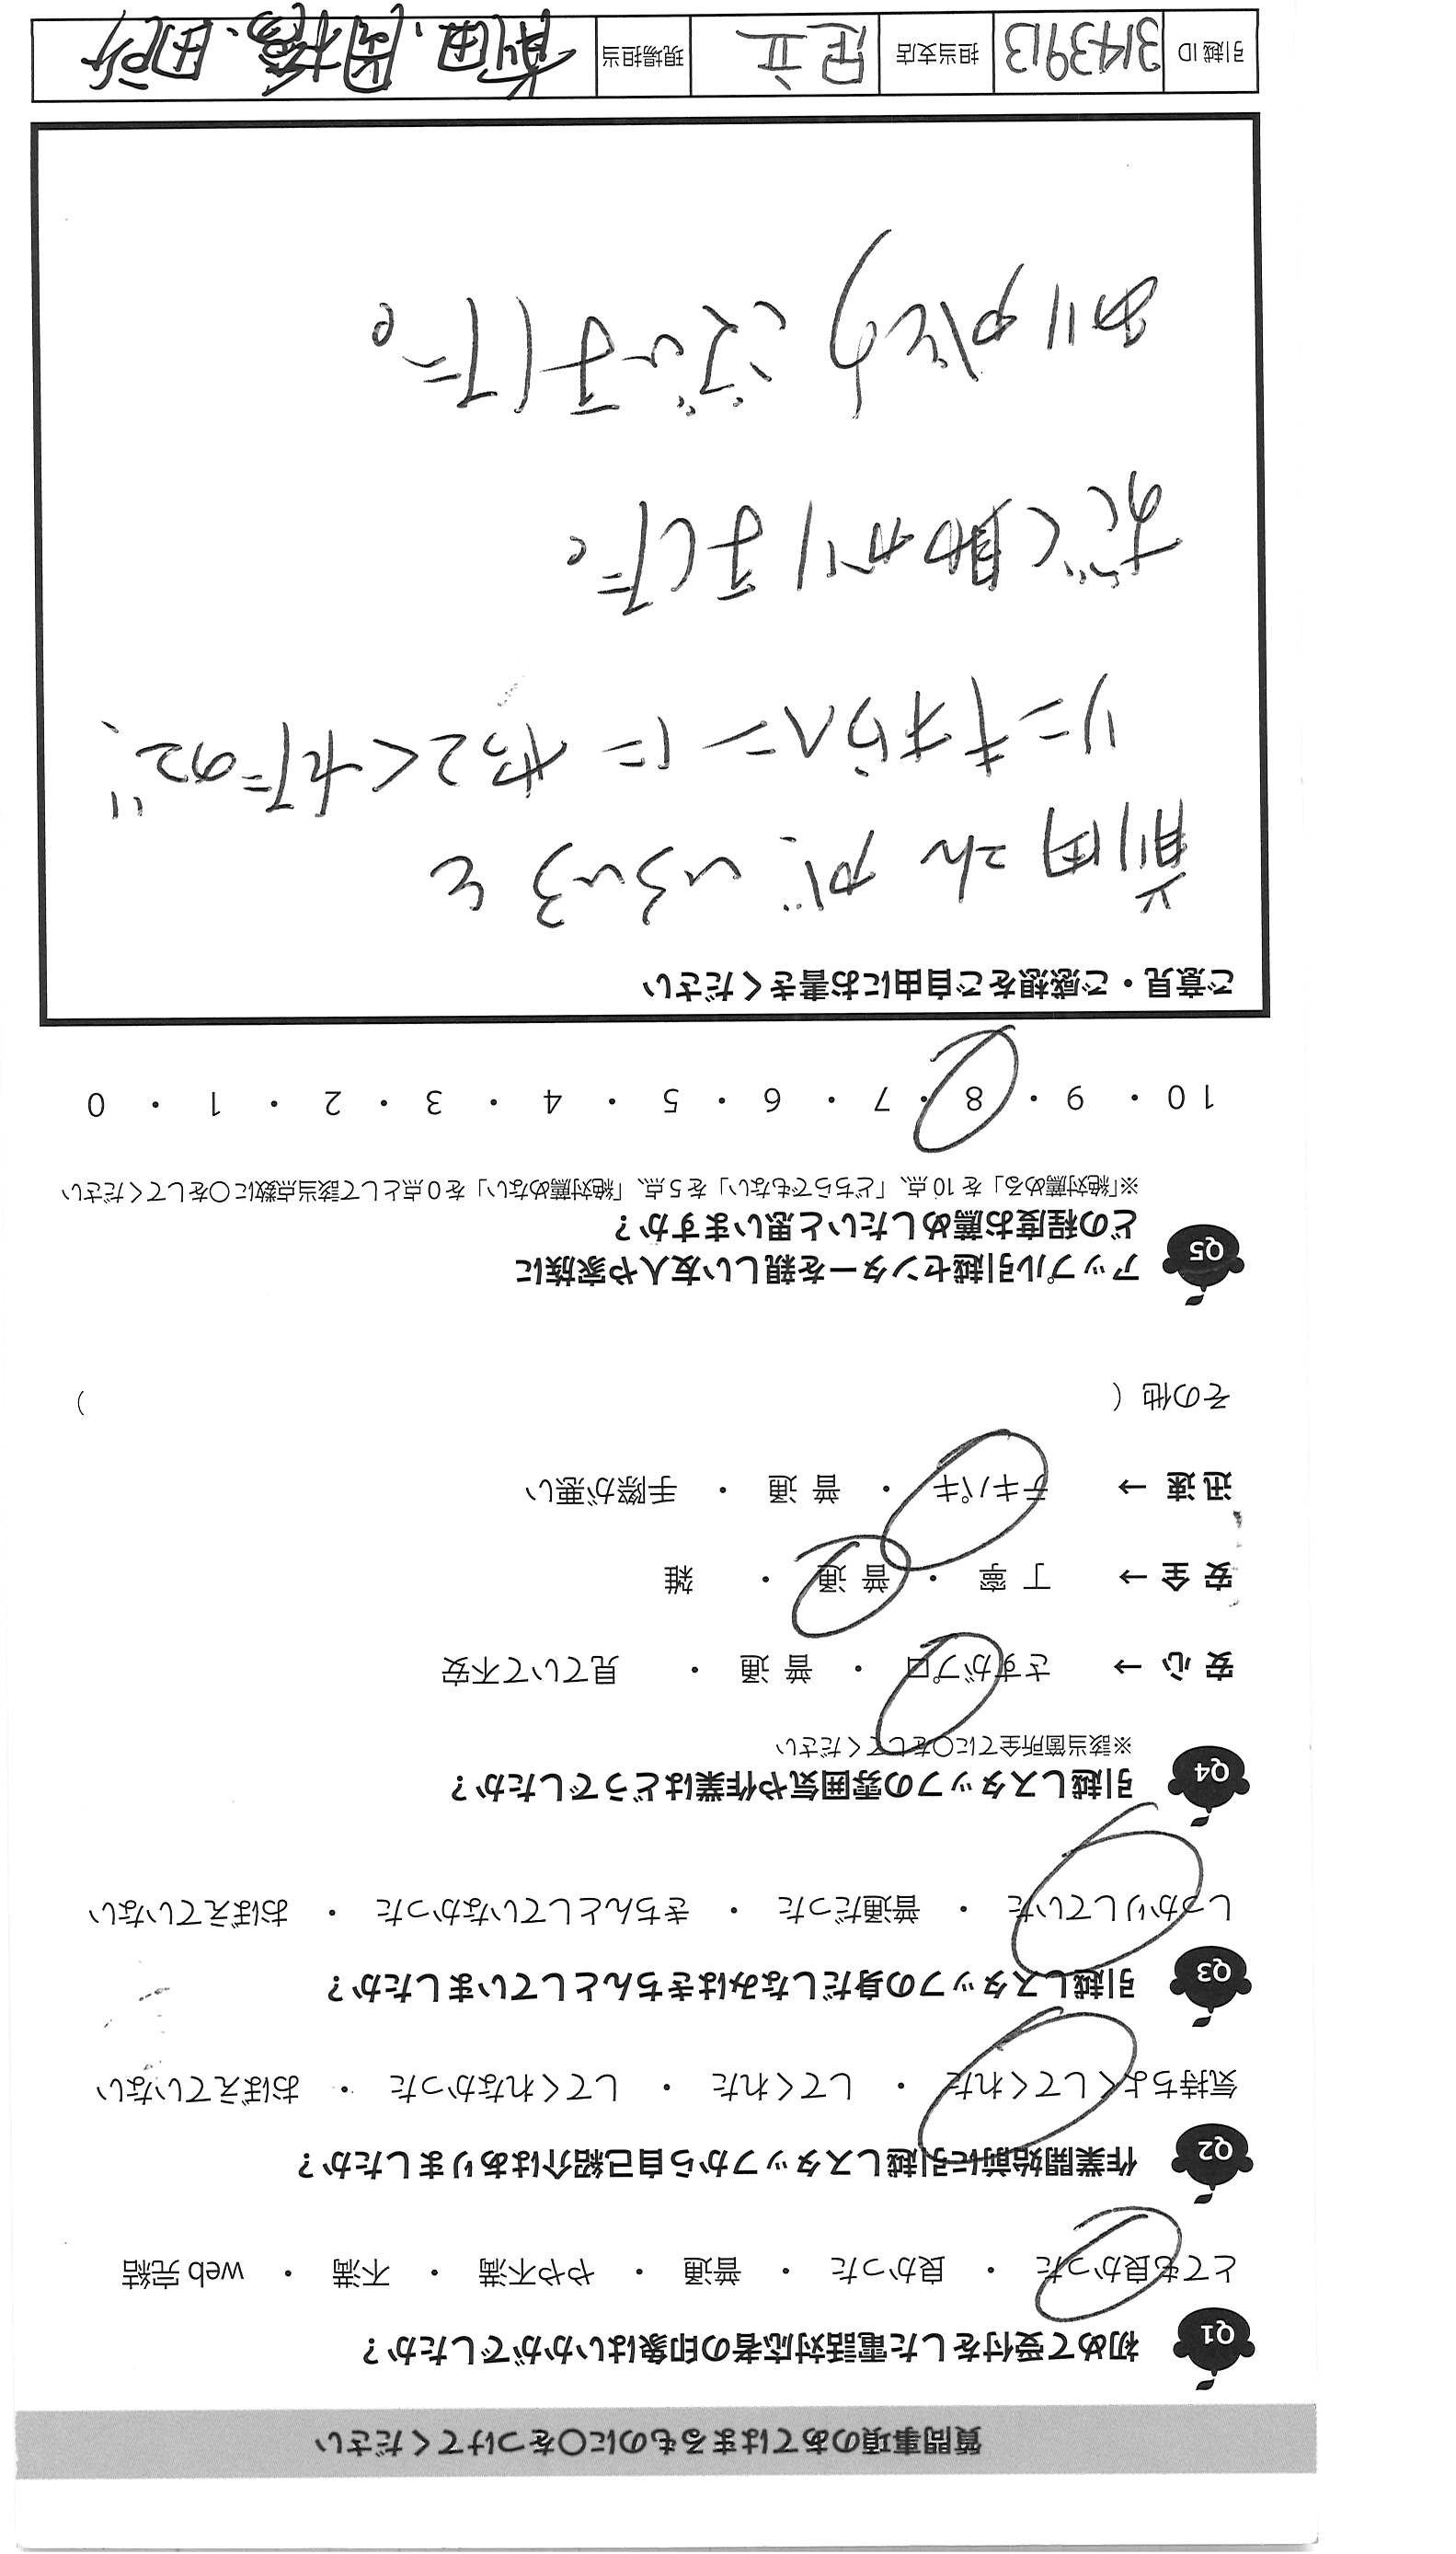 質問事項のあてはまるものに○をつけてください
Q1 初めて受付をした電話対応者の印象はいかがでしたか？
とても良かった ・ 良かった ・ 普通 ・ やや不満 ・ 不満 ・ web 完結
Q2 作業開始前に引越しスタッフから自己紹介はありましたか？
気持ちよくしてくれた ・ してくれた ・ してくれなかった ・ おぼえていない
Q3 引越しスタッフの身だしなみはきちんとしていましたか？
しっかりしていた ・ 普通だった ・ きちんとしていなかった ・ おぼえていない
Q4 引越しスタッフの雰囲気や作業はどうでしたか？
※該当箇所全てに○をしてください
安 心 → さすがプロ ・ 普 通 ・ 見ていて不安
安 全 → 丁 寧 ・ 普 通 ・ 雑
迅 速 → テキパキ ・ 普 通 ・ 手際が悪い
その他（ ）
Q5 アップル引越センターを親しい友人や家族に
どの程度お薦めしたいと思いますか？
※「絶対薦める」を 10 点、「どちらでもない」を 5 点、「絶対薦めない」を 0 点として該当点数に○をしてください
10 ・ 9 ・ 8 ・ 7 ・ 6 ・ 5 ・ 4 ・ 3 ・ 2 ・ 1 ・ 0
ご意見・ご感想をご自由にお書きください
前田さんが、いろいろと
リーだけに やってくれたので、
助かりました。
ありがとうございました。
引越 ID 3143913 担当支店 足立 現場担当 前田、高橋、田所